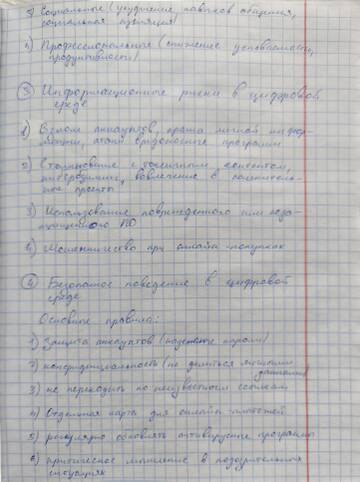 3) Социальные (ухудшение навыков общения,
социальная изоляция)
4) Профессиональные (снижение успеваемости,
продуктивности)
③ Информационные риски в цифровой
среде
1) Взлом аккаунтов, кража личной инфор-
мации, атаки вредоносных программ
2) Столкновение с токсичным контентом,
кибербуллинг, вовлечение в сомнитель-
ные проекты
3) Использование поврежденного или
ПО
4) Мошенничество при онлайн-покупках
④ Безопасное поведение в цифровой
среде
Основные правила:
1) Защита аккаунтов (надежные пароли)
2) конфиденциальность (не делиться личными
данными)
3) не переходить по неизвестным ссылкам
4) Отдельная карта для онлайн-платежей
5) регулярно обновлять антивирусные программы
6) критическое мышление в подозрительных
ситуациях